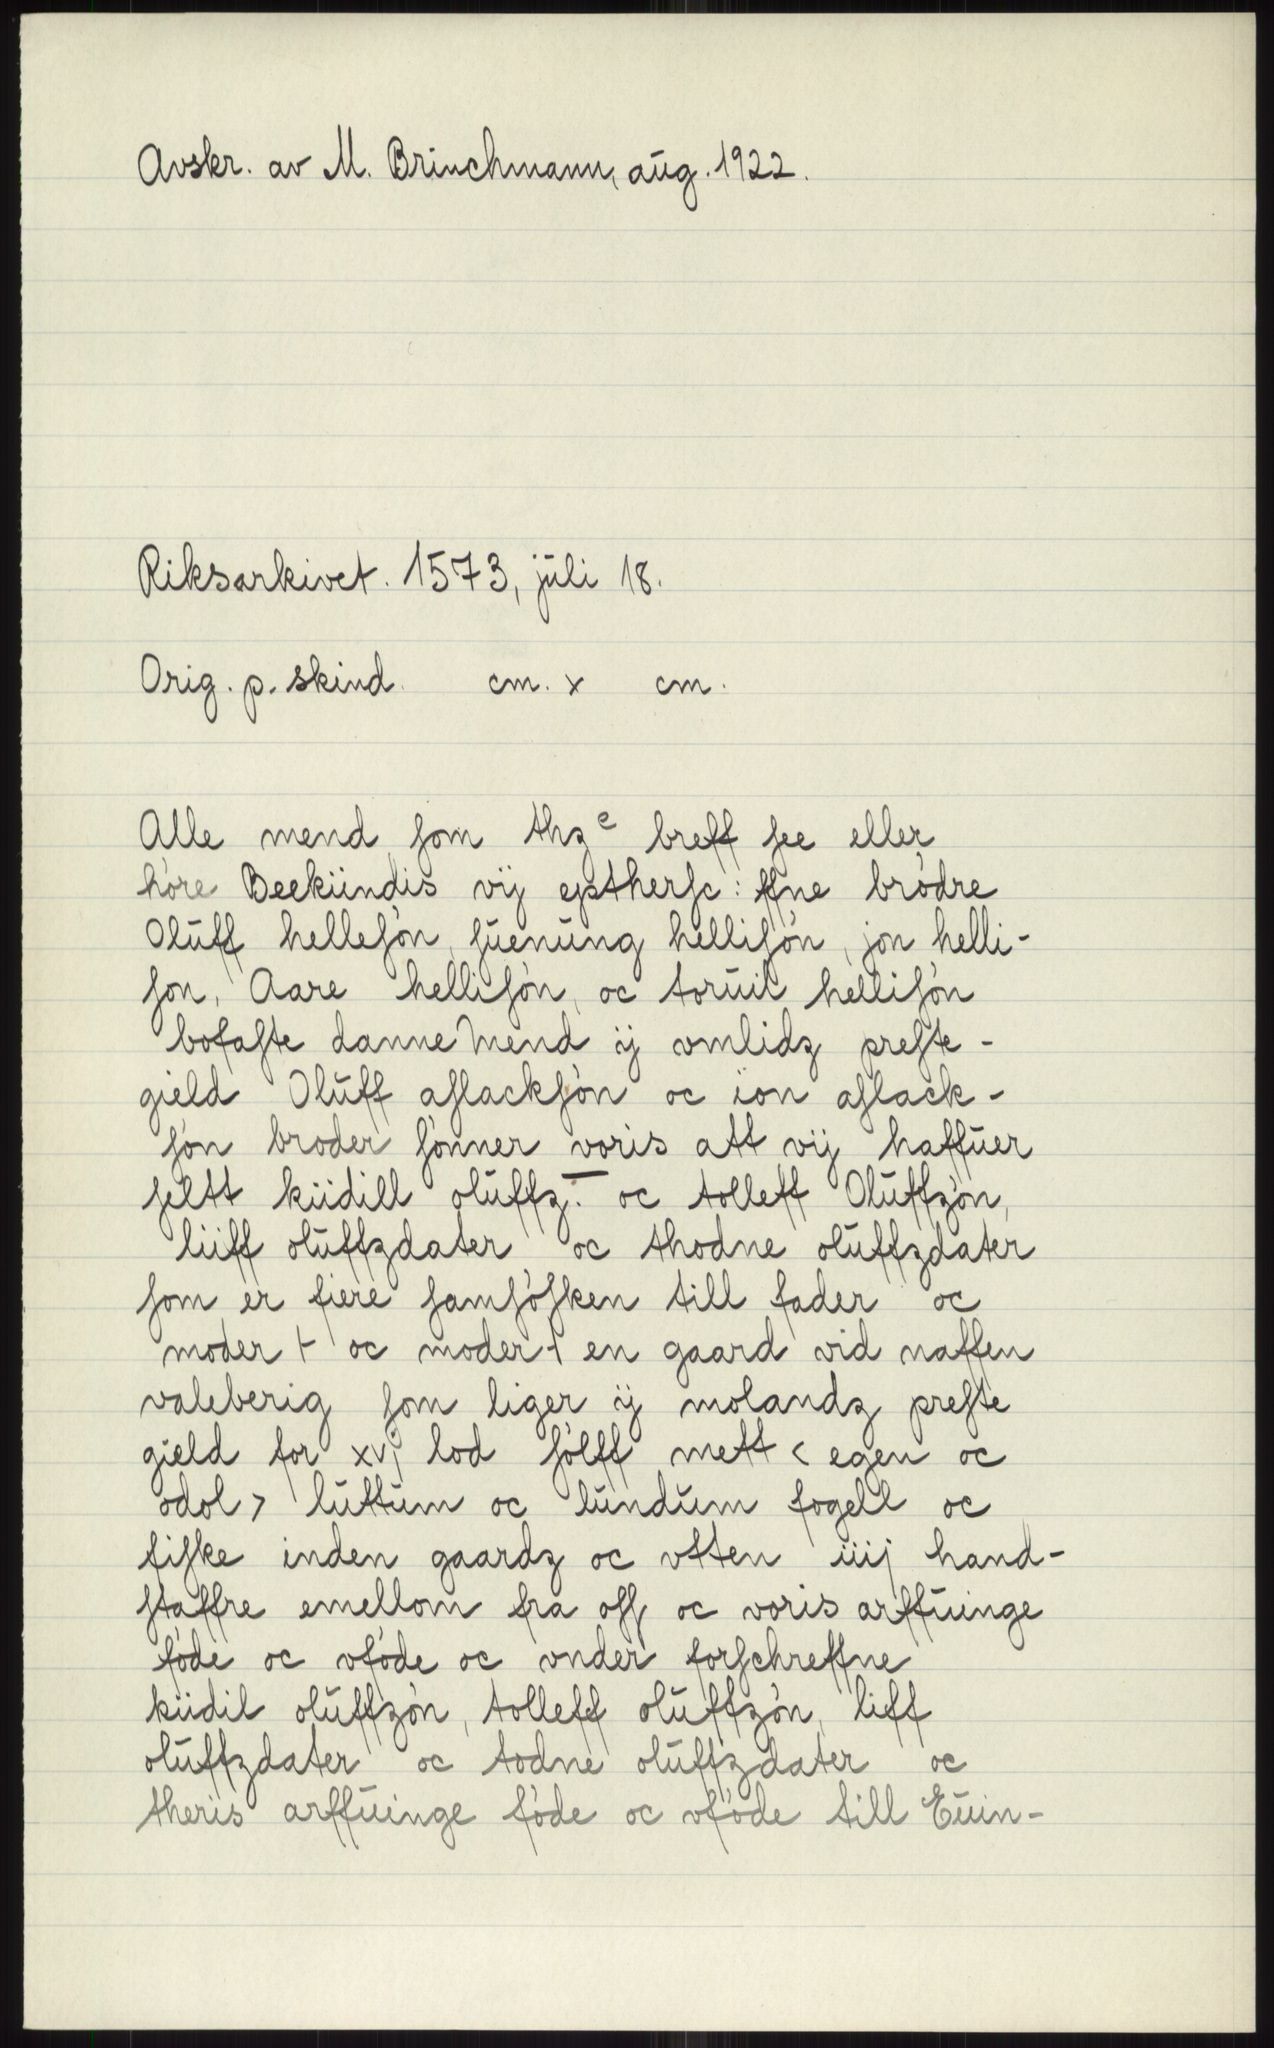 Avskr. av M. Brinchmann, aug. 1922.
Riksarkivet. 1573, juli 18.
Orig. p. skind. cm. x cm.
Alle mend ſom thzᵉ breff ſee eller
höre Beekiindis vij eptherſc: ffne brödre
Oluff helleſön, ſuenung helliſön, jon helli-
ſon, Aare helliſön, oc toruil helliſön
bofaſte danne Mend ij vmlidz preſte-
gield Oluff aſlackſön oc ion aſlack-
ſön broder ſönner voris att vij haffuer
ſeltt kiidill oluffz.̅ oc tolleff Oluffzön,
liiff oluffzdater oc thodne oluffzdater
ſom er fiere ſamſöſken till fader oc
moder ⊢ oc moder ⊣ en gaard vid naffen
valeberig ſom liger ij molandz preſte
gield for xvj lod ſölff mett < egen oc
odol > luttum oc lundum fogell oc
fiſke inden gaardz oc vtten iiij hand-
ſtaffre emellom fra oſſ oc voris arffuinge
föde oc vföde oc vnder forſchreffne
kiidil oluffzön, tolleff oluffzön, liff
oluffzdater oc todne oluffzdater oc
theris arffuinge föde oc vföde till Euin-